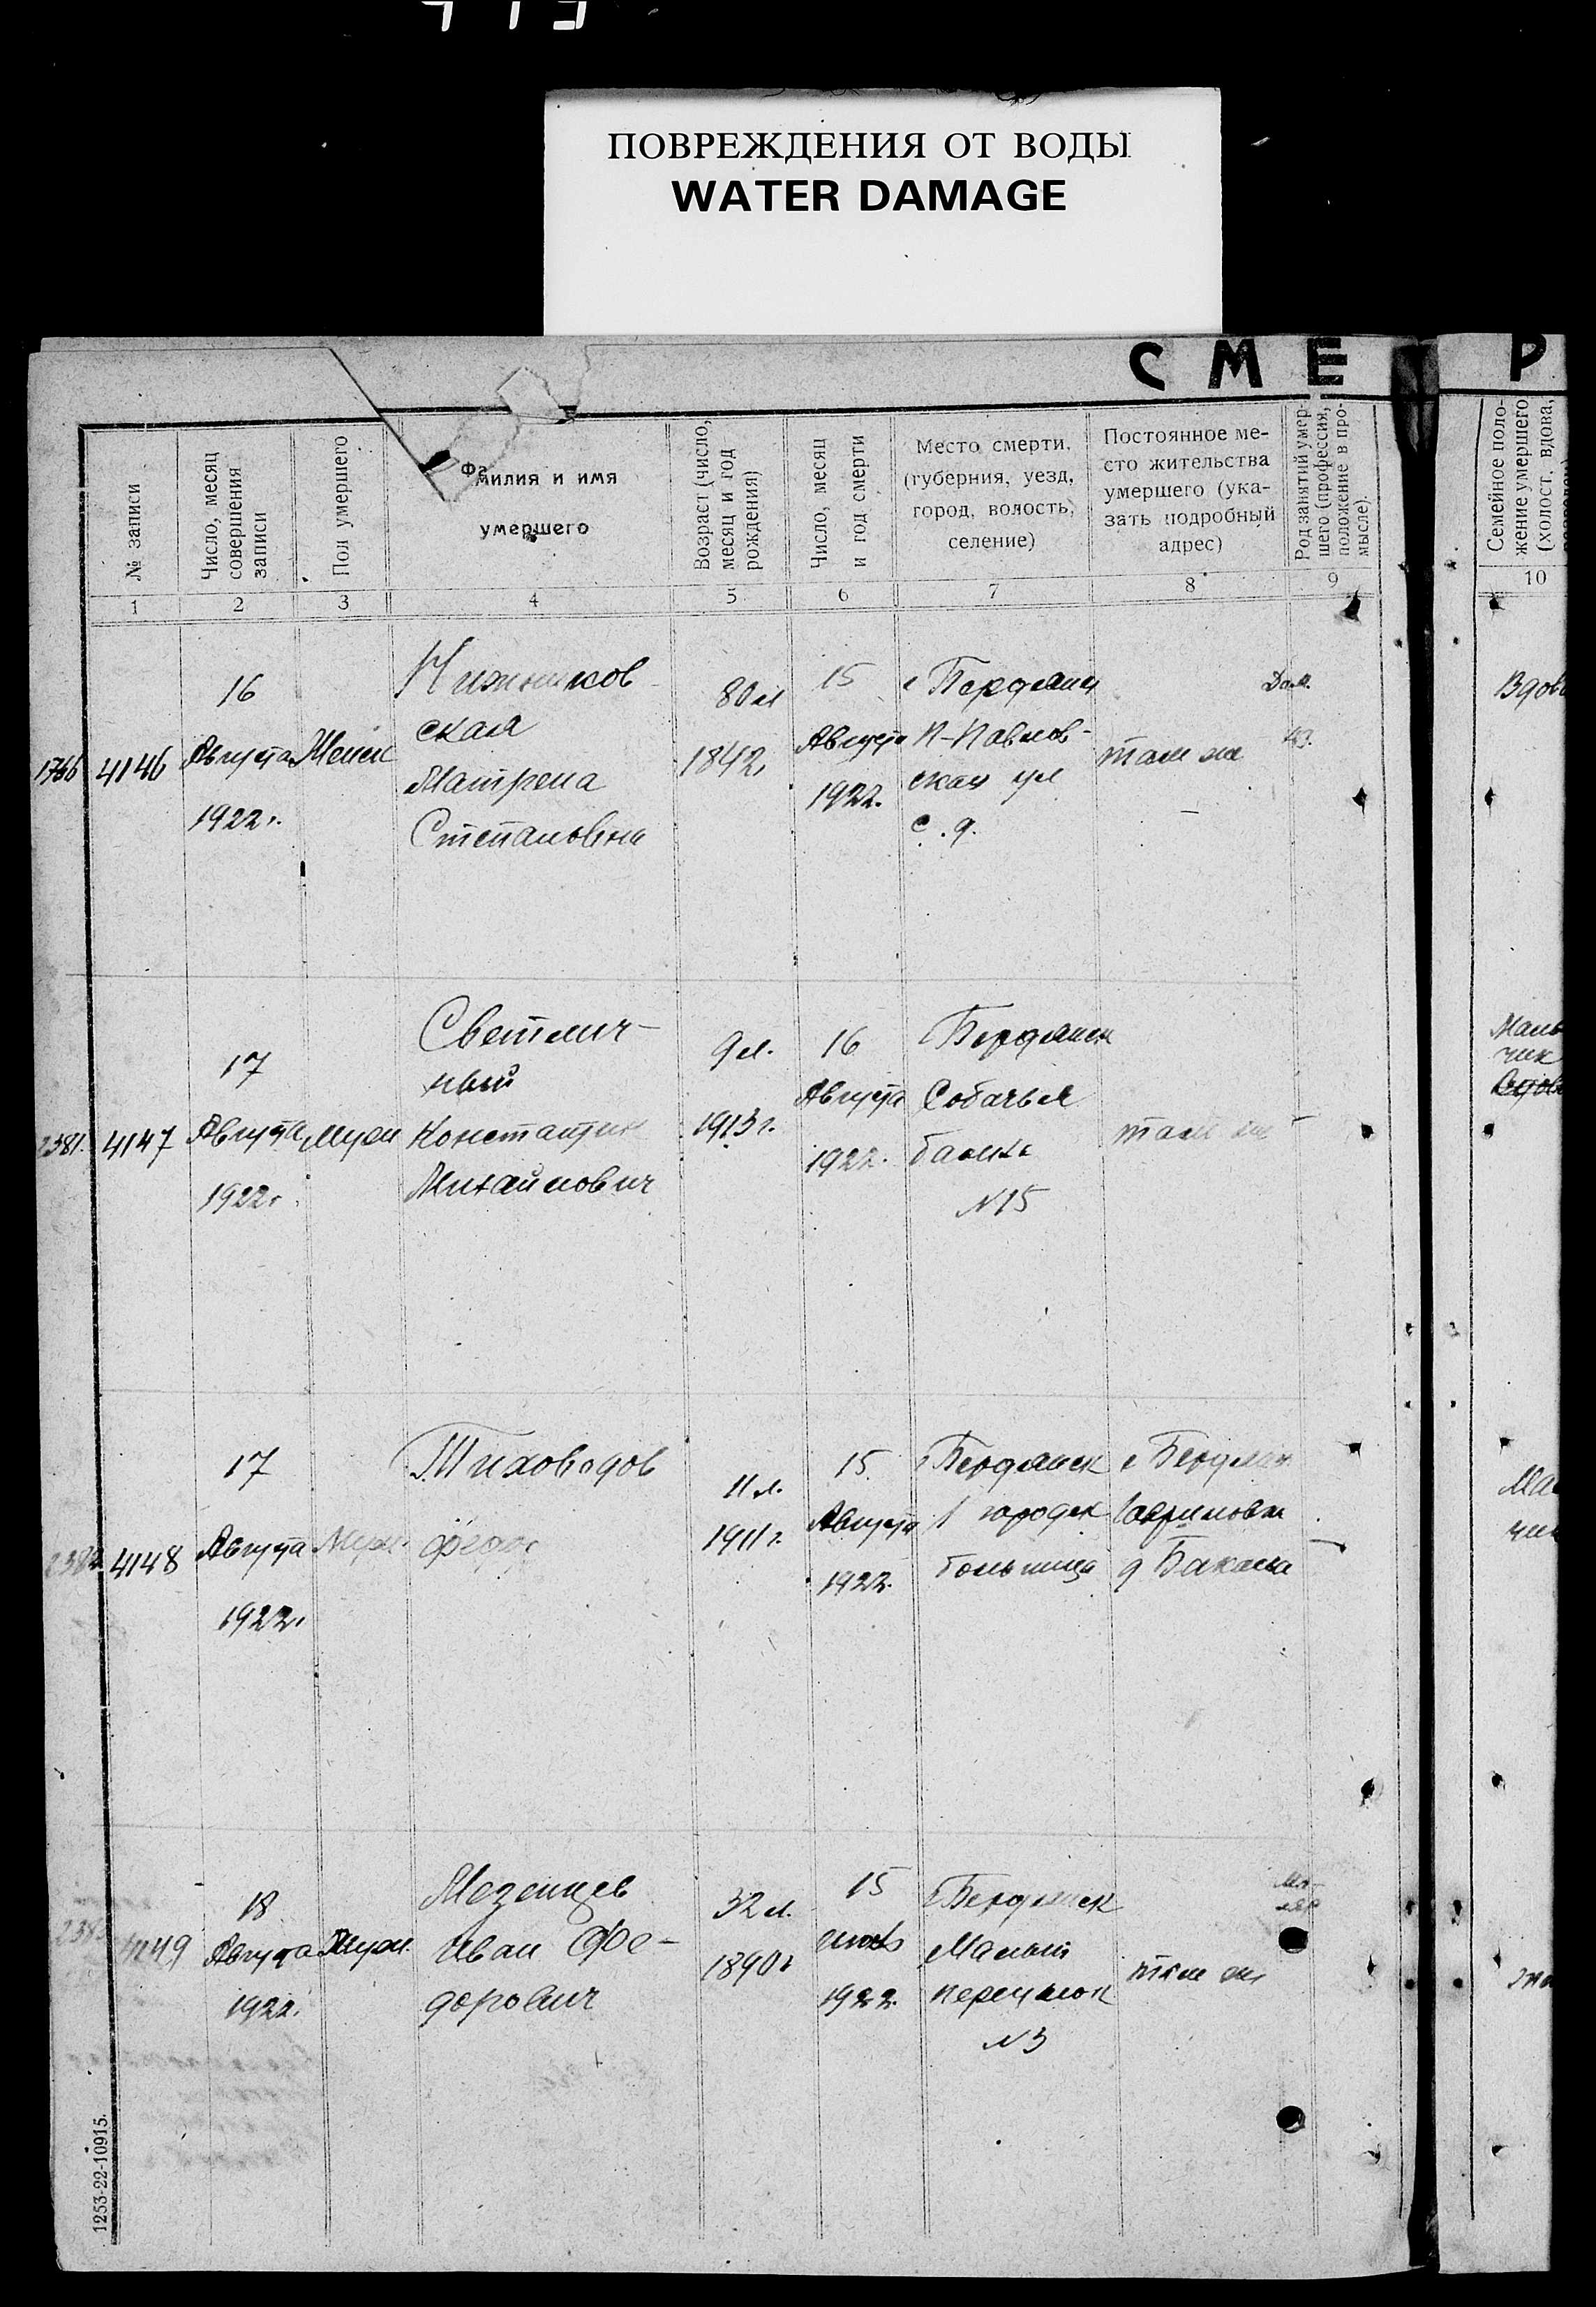 ПОВРЕЖДЕНИЯ ОТ ВОДЫ
WATER DAMAGE
СМЕ Р
№ записи
Число, месяц
совершения
записи
Пол умершего
Фамилия и имя
умершего
Возраст (число,
месяц и год
рождения)
Число, месяц
и год смерти
Место смерти,
(губерния, уезд,
город, волость,
селение)
Постоянное ме-
сто жительства
умершего (ука-
зать подробный
адрес)
Род занятий умер-
шего (профессия,
положение в про-
мысле).
Семейное поло-
жение умершего
(холост, вдова,
1 2 3 4 5 6 7 8 9 10
1766
4146
16
Августа
1922г.
Женск
Нижников-
ская
Матрена
Степановна
80 л
1842г
15
Августа
1922.
г Бердянск
П-Павлов-
ская ул
с. д.
там же
Дом.
Вдов
2381.
4147
17
Августа
1922г
Муж
Светлич-
ный
Константин
Михайлович
9 л.
1913 г.
16
Августа
1922.
Бердянск
Собачья
балка
№15
там же
Маль
чик
4148
17
Августа
1922г
Муж.
Тиховодов
Федор
11 л.
1911 г.
15
Августа
1922.
г Бердянск
1 городск
больница
г Бердянск
д Бакала
Ма
чик
4149
18
Августа
1922г.
Муж.
Мезенцев
Иван Фе-
дорович
32 л.
1890г
15
1922.
г Бердянск
Малый
переулок
№3
там же
1253-22-10915.